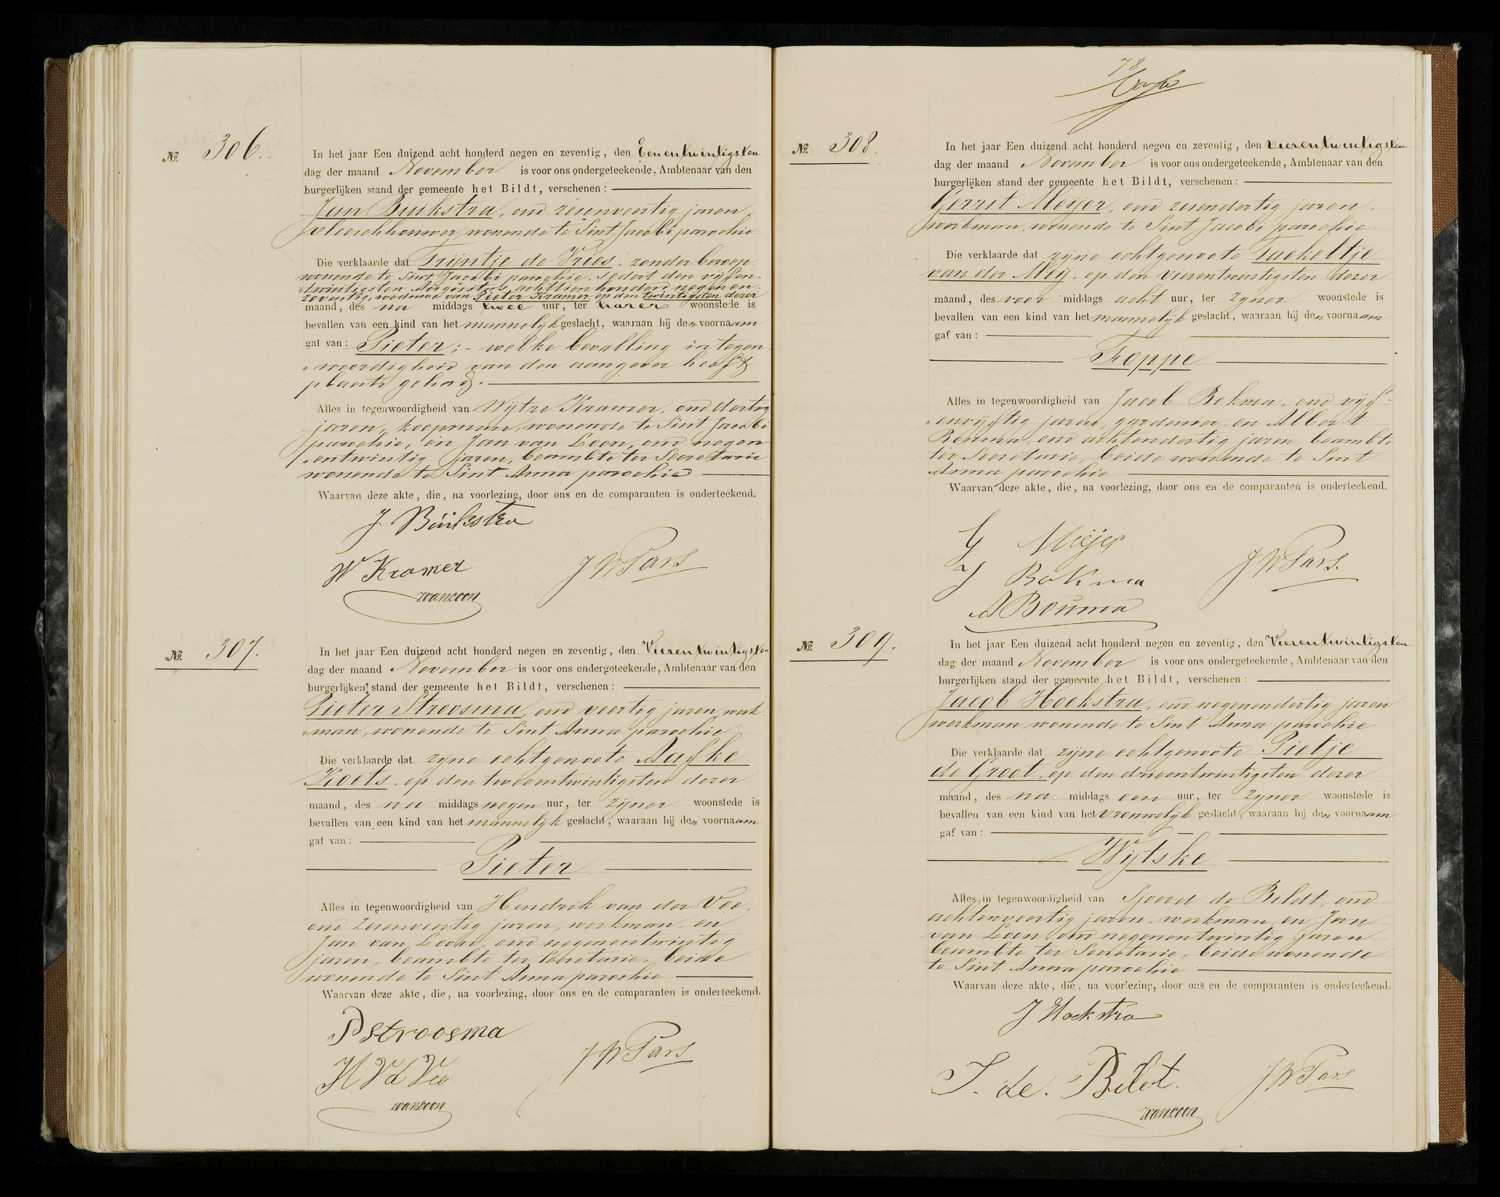 № 306.
In het jaar Een duizend acht honderd negen en zeventig, den Eenentwintigsten
dag der maand November is voor ons ondergeteekende, Ambtenaar van den
burgerlijken stand der gemeente het Bildt, verschenen:
Jan Buikstra, oud zevenveertig jaren
wonende te Sint Jacobi parochie
Die verklaarde dat Trijntje de Vries, zonder beroep
wonende te Sint Jacobi parochie, sedert den vijfen-
twintigsten Augustus, achttien honderd negen en
zeventig, weduwe van Pieter Kramer op den twintigsten dezer
maand, des na middags twee uur, ter harer woonstede is
bevallen van een kind van het mannelijk geslacht, waaraan hij den voornaam
gaf van: Pieter; - welke bevalling in tegen-
woordigheid van den aangever heeft
plaats gehad.
Alles in tegenwoordigheid van Wytze Kramer, oud dertig
jaren, koopman, wonende te Sint Jacobi
parochie, en Jan van Loon, oud negen-
entwintig jaren, beambte ter Secretarie
wonende te Sint Anna parochie
Waarvan deze akte, die, na voorlezing, door ons en de comparanten is onderteekend.
J. Buikstra
W Kramer
JW Pars
vanloon
№ 307.
In het jaar Een duizend acht honderd negen en zeventig, den Vierentwintigsten
dag der maand November is voor ons ondergeteekende, Ambtenaar van den
burgerlijken stand der gemeente het Bildt, verschenen:
Pieter Stroosma, oud veertig jaren, werk-
man, wonende te Sint Anna parochie
Die verklaarde dat zyne echtgenoote Aafke
Koets, op den tweeentwintigsten dezer
maand, des na middags negen uur, ter zijner woonstede is
bevallen van een kind van het mannelyk geslacht, waaraan hij den voornaam
gaf van:
Pieter
Alles in tegenwoordigheid van Hendrik van der Vee,
oud zevenveertig jaren, werkman, en
Jan van Loon, oud negenentwintig
jaren, beambte ter Secretarie, beide
wonende te Sint Anna parochie
Waarvan deze akte, die, na voorlezing, door ons en de comparanten is onderteekend.
P Stroosma
H Vd Vee
JW Pars
vanloon
78
№ 308.
In het jaar Een duizend acht honderd negen en zeventig, den Vierentwintigsten
dag der maand November is voor ons ondergeteekende, Ambtenaar van den
burgerlijken stand der gemeente het Bildt, verschenen:
Gerrit Meijer, oud zesendertig jaren
werkman, wonende te Sint Jacobi parochie
Die verklaarde dat zyne echtgenoote Taekeltje
van der Meij, op den vierentwintigsten dezer
maand, des voor middags acht uur, ter zyner woonstede is
bevallen van een kind van het mannelyk geslacht, waaraan hij den voornaam
gaf van:
Foppe
Alles in tegenwoordigheid van Jacob Bokma, oud vijf-
envijftig jaren, gardenier en Albert
Bouma, oud achtendertig jaren, beambte
ter Secretarie, beide wonende te Sint
Anna parochie
Waarvan deze akte, die, na voorlezing, door ons en de comparanten is onderteekend.
G Meijer
J Bokma
JW Pars.
A Bouma
№ 309.
In het jaar Een duizend acht honderd negen en zeventig, den Vierentwintigsten
dag der maand November is voor ons ondergeteekende, Ambtenaar van den
burgerlijken stand der gemeente het Bildt, verschenen:
Jacob Hoekstra, oud negenendertig jaren
werkman wonende te Sint Anna parochie
Die verklaarde dat zijne echtgenoote Pietje
de Groot, op den drieentwintigsten dezer
maand, des na middags een uur, ter zyner woonstede is
bevallen van een kind van het vrouwelyk geslacht, waaraan hij den voornaam
gaf van:
Wijtske
Alles in tegenwoordigheid van Sjoerd de Bildt, oud
achtenveertig jaren, werkman, en Jan
van Loon, oud negenentwintig jaren
beambte ter Secretarie, beide wonende
te Sint Anna parochie
Waarvan deze akte, die, na voorlezing, door ons en de comparanten is onderteekend.
J Hoekstra
S. de. Bildt.
JW Pars
vanloon